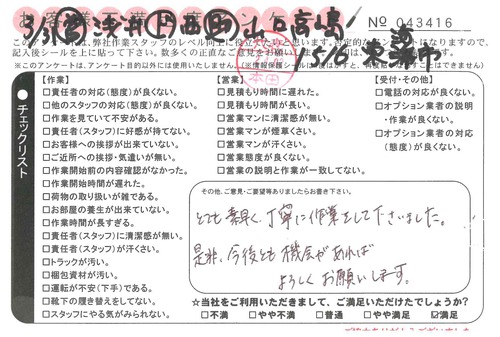 № 043416
チェックリスト
【作業】
□責任者の対応(態度)が良くない。
□他のスタッフの対応(態度)が良くない。
□作業を見ていて不安がある。
□責任者(スタッフ)に好感が持てない。
□お客様への挨拶が出来ていない。
□ご近所への挨拶・気遣いが無い。
□作業開始前の内容確認がなかった。
□作業開始時間が遅れた。
□荷物の取り扱いが雑である。
□お部屋の養生が出来ていない。
□作業時間が長すぎる。
□責任者(スタッフ)に清潔感が無い。
□責任者(スタッフ)が汗くさい。
□トラックが汚い。
□梱包資材が汚い。
□運転が不安(下手)である。
□靴下の履き替えをしてない。
□スタッフにやる気がみられない。
【営業】
□見積もり時間に遅れた。
□見積もり時間が長い。
□営業マンに清潔感が無い。
□営業マンが煙草くさい。
□営業マンが汗くさい。
□営業態度が良くない。
□営業の説明と作業が一致してない。
【受付・その他】
□電話の対応が良くない。
□オプション業者の説明
・作業が良くない。
□オプション業者の対応
(態度)が良くない。
その他、ご意見・ご要望等ありましたらお書き下さい。
とても素早く、丁寧に作業をして下さいました。
是非、今後とも機会があれば
よろしくお願いします。
☆当社をご利用いただきまして、ご満足いただけたでしょうか?
□不満 □やや不満 □普通 □やや満足 ☑満足